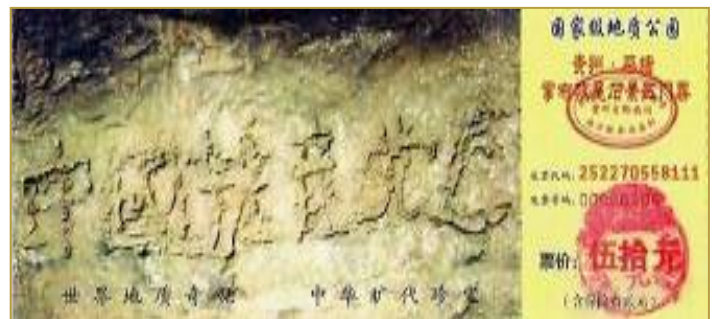 中國共产党
世界地质奇观 中华旷代珍宝
国家级地质公园
贵州·平塘
掌布藏字石景区门票
发票代码: 252270558111
发票号码:
票价: 伍拾元